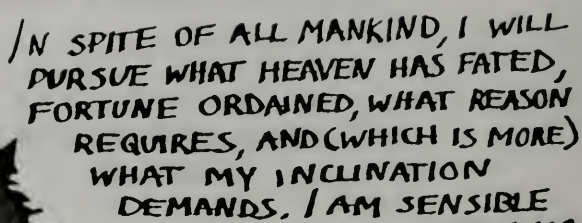 IN SPITE OF ALL MANKIND, I WILL
PURSUE WHAT HEAVEN HAS FATED,
FORTUNE ORDAINED, WHAT REASON
REQUIRES, AND (WHICH IS MORE)
WHAT MY INCLINATION
DEMANDS. I AM SENSIBLE